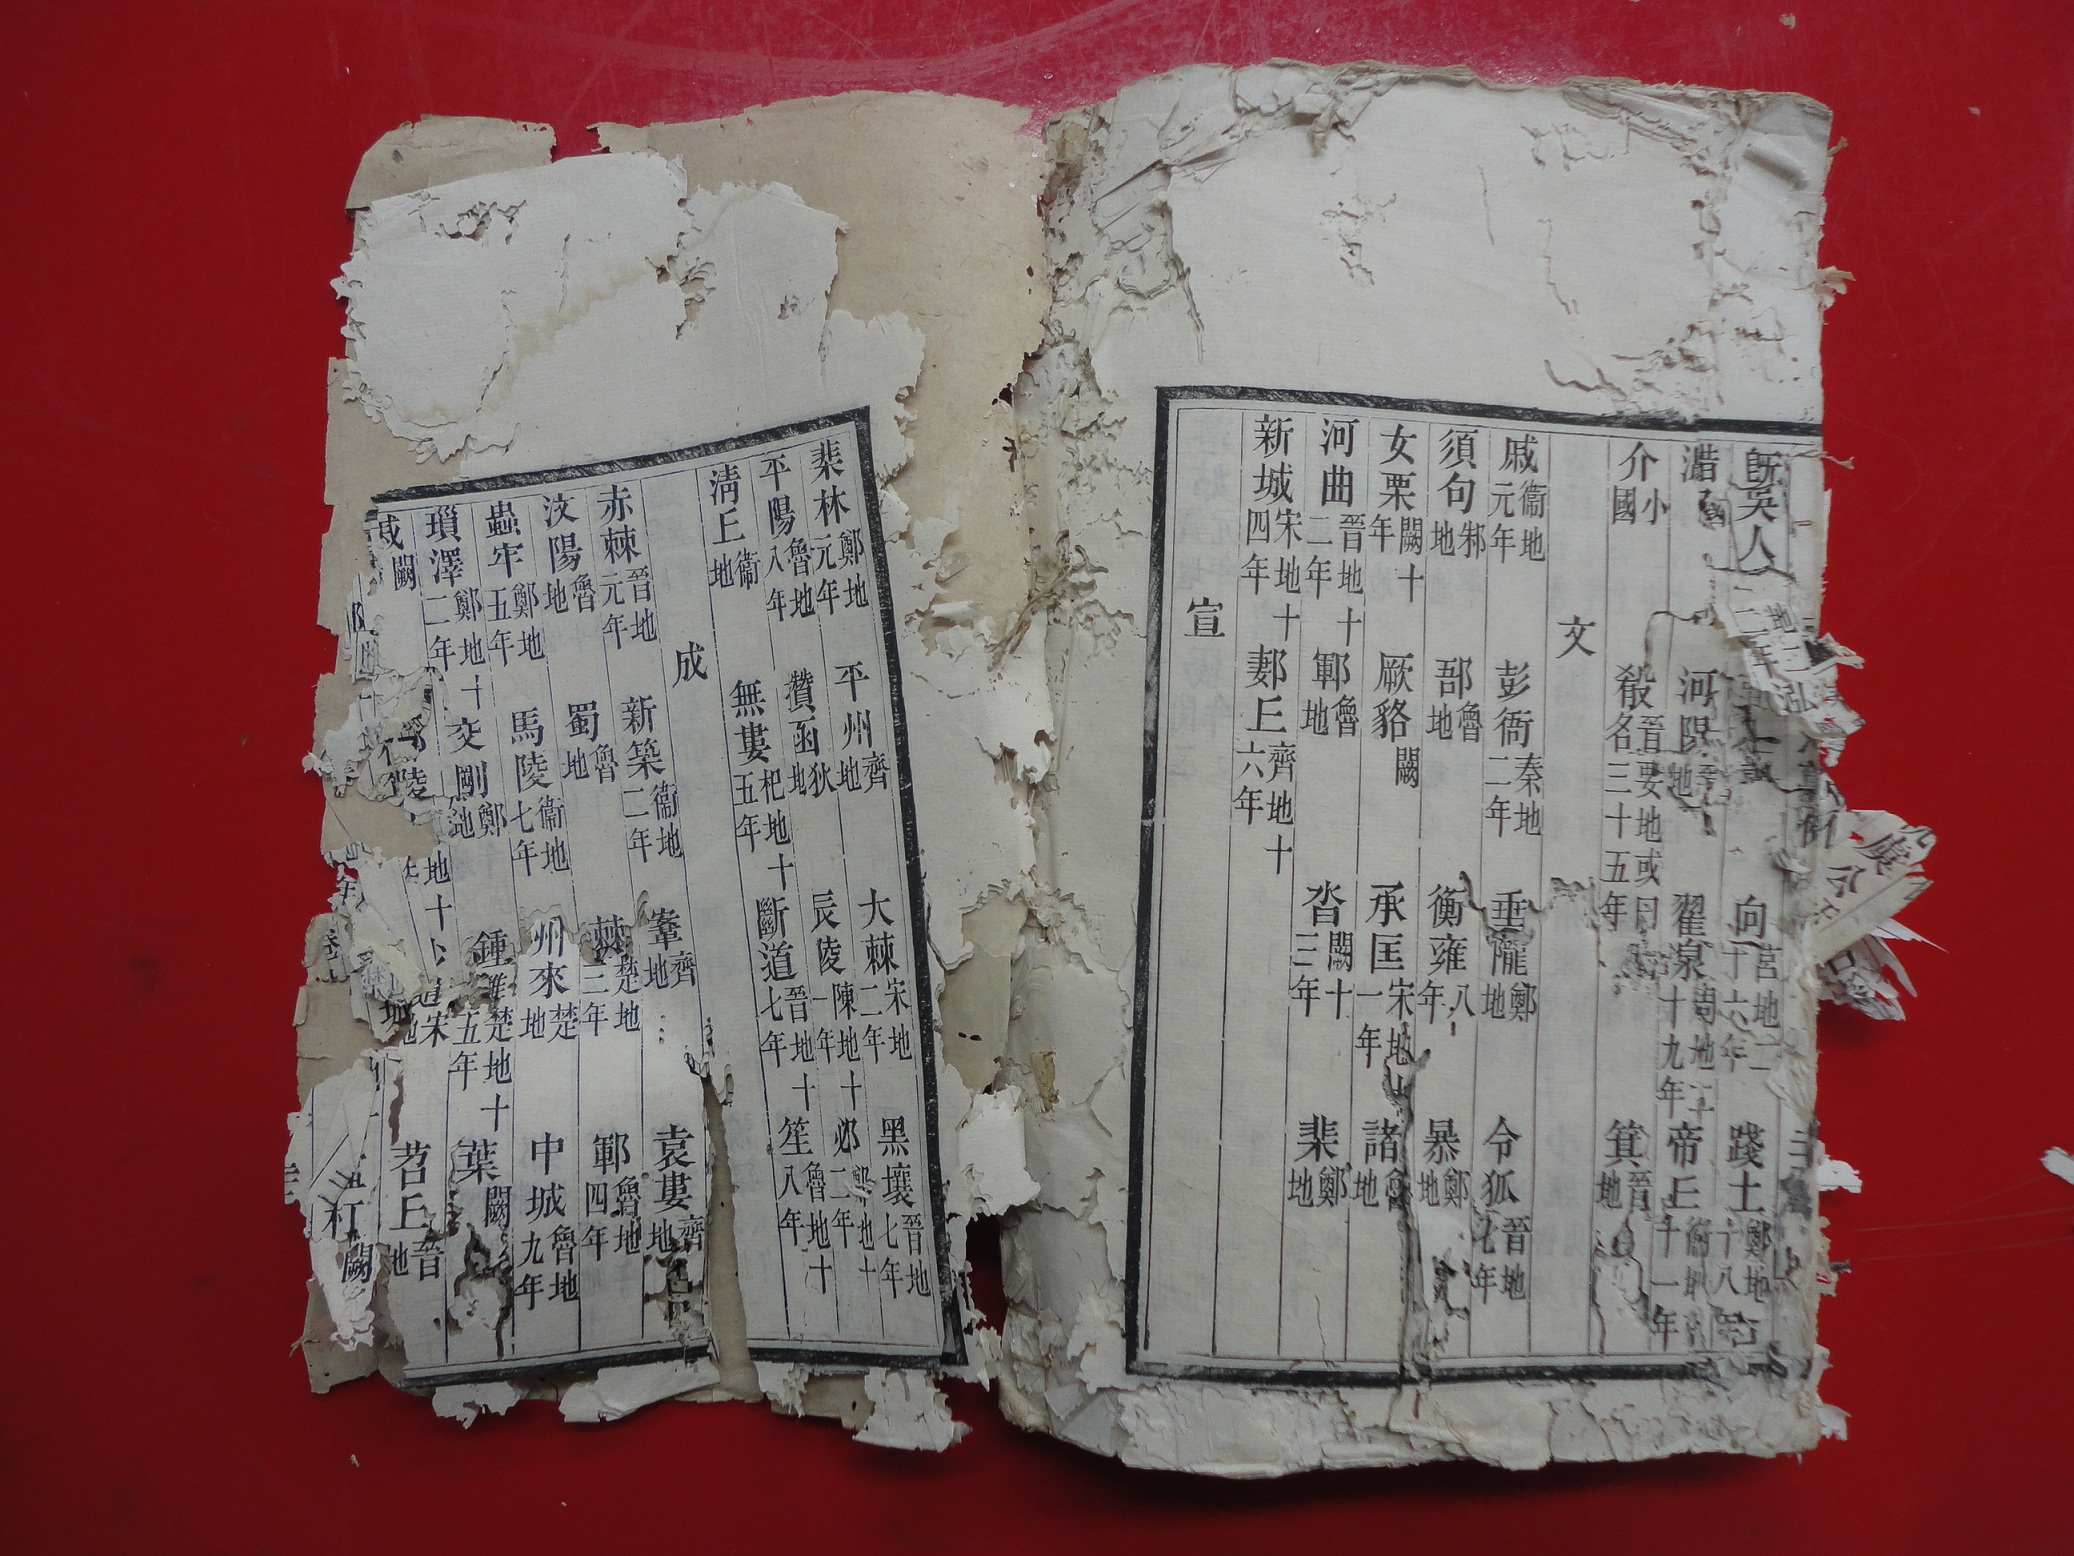 既吳人
向莒地二十六年 踐土鄭地二十八年
河陽 翟泉周地二十九年 帝丘衛地三十一年
介小國 殽晉要地或曰名三十五年 箕晉地
文
戚衛地元年 彭衙秦地二年 垂隴鄭地 令狐晉地七年
須句邾地 郚魯地 衡雍八年 暴鄭地
女栗闕十年 厥貉闕 承匡宋地十一年 諸魯地
河曲晉地十二年 鄆魯地 沓闕十三年 棐鄭地
新城宋地十四年 郪丘齊地十六年
宣
棐林鄭地元年 平州齊地 大棘宋地二年 黑壤晉地七年
平陽魯地八年 攢函狄地 辰陵陳地十一年 邲鄭地十二年
清丘衛地 無婁杞地十五年 斷道晉地十七年 笙魯地十八年
成
赤棘晉地元年 新築衛地二年 鞌齊地 袁婁齊地
汶陽魯地 蜀魯地 棘楚地三年 鄆魯地四年
蟲牢鄭地五年 馬陵衛地七年 州來楚地 中城魯地九年
瑣澤鄭地十二年 交剛鄭地 鍾離楚地十五年 葉闕
戚闕 陵 宋地 苕丘晉地